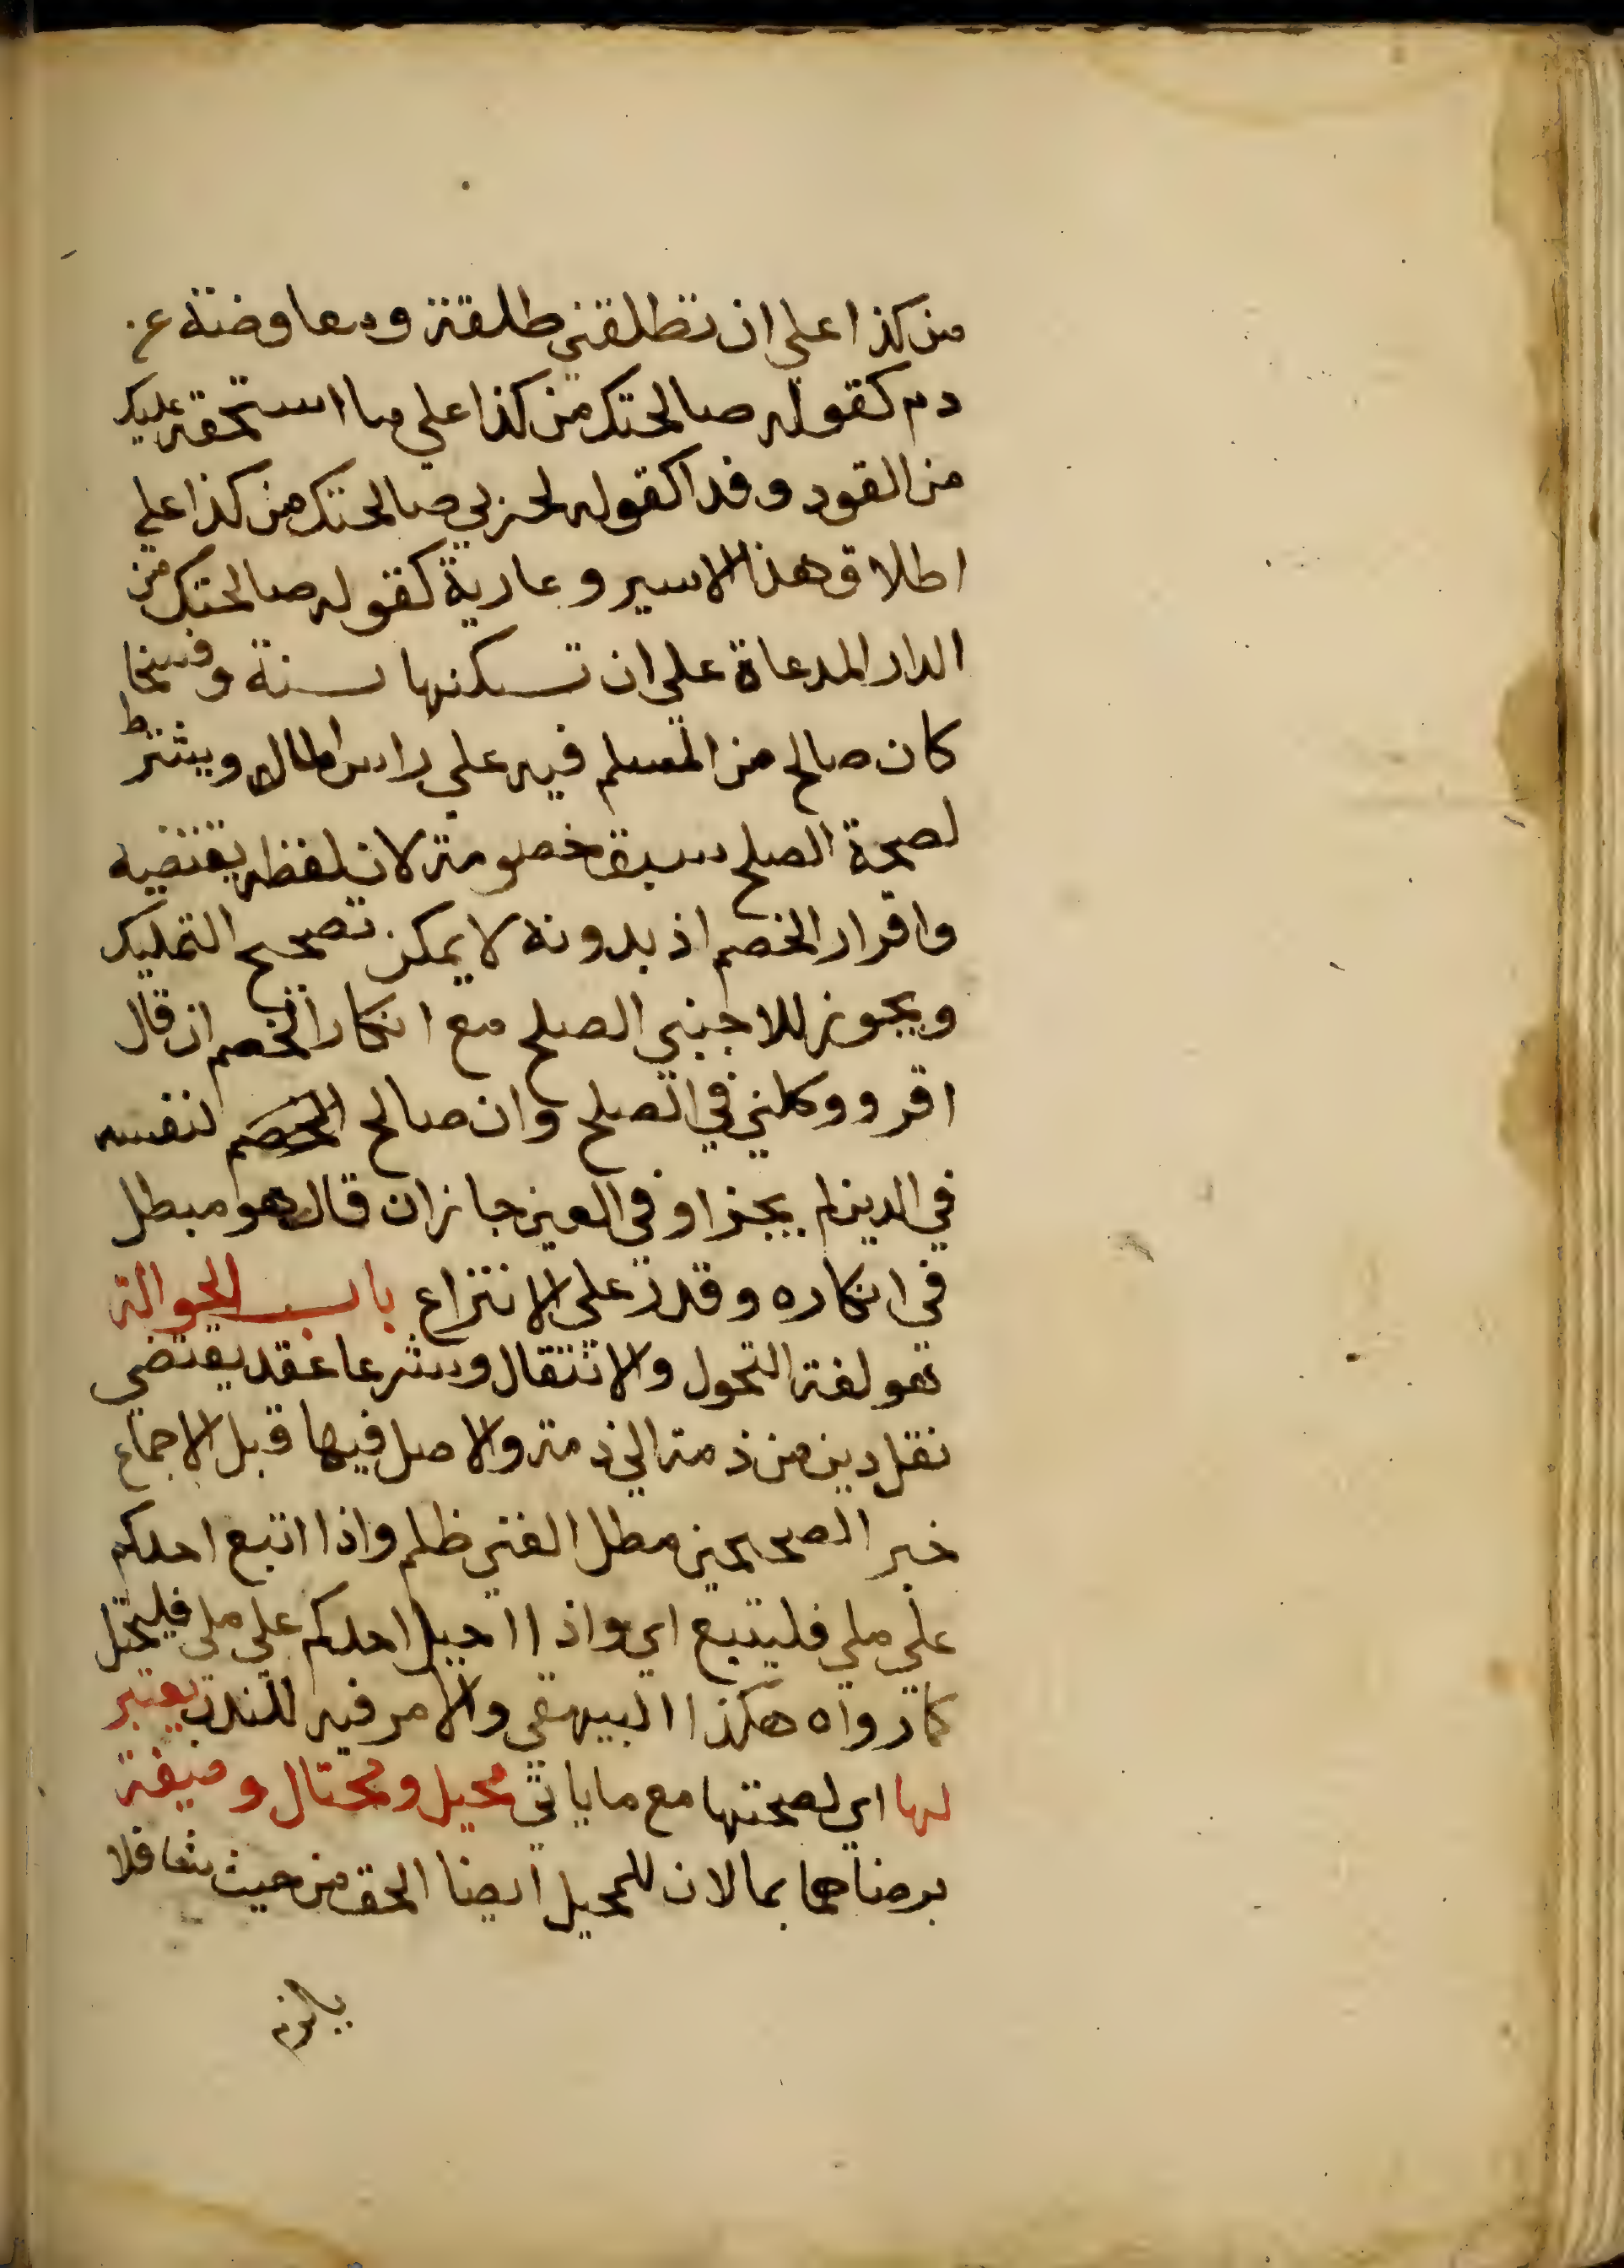 من كذا علي ان تطلقني طلقة ومعاوضة عن
دم كقوله صالحتك من كذا علي ما استحقه عليك
من القود وفدا كقوله لحربي صالحتك من كذا علي
اطلاق هذا الاسير وعارية كقوله صالحتك من
الدار المدعاة علي ان تسكنها سنة وفسخا
كان صالح من المسلم فيه علي راس المال ويشترط
لصحة الصلح سبق خصومة لان لفظه يقتضيه
واقرار الخصم اذ بدونه لا يمكن تصحيح التمليك
ويجوز للاجنبي الصلح مع انكار الخصم ان قال
اقر ووكلني في الصلح وان صالح الخصم لنفسه
في الدين لم يجز او في العين جاز ان قال هو مبطل
في انكاره وقدر علي الانتزاع باب الحوالة
هو لغة التحول والانتقال وشرعا عقد يقتضي
نقل دين من ذمة الي ذمة والاصل فيها قبل الاجماع
خبر الصحيحين مطل الغني ظلم واذا اتبع احدكم
علي ملي فليتبع اي واذا احيل احدكم علي ملي فليحتل
كما رواه هكذا البيهقي والامر فيه للندب يعتبر
لها اي لصحتها مع ما ياتي محيل ومحتال وصيغة
برضاهما بها لان للمحيل ايضا الحق من حيث شا فلا
يلزم